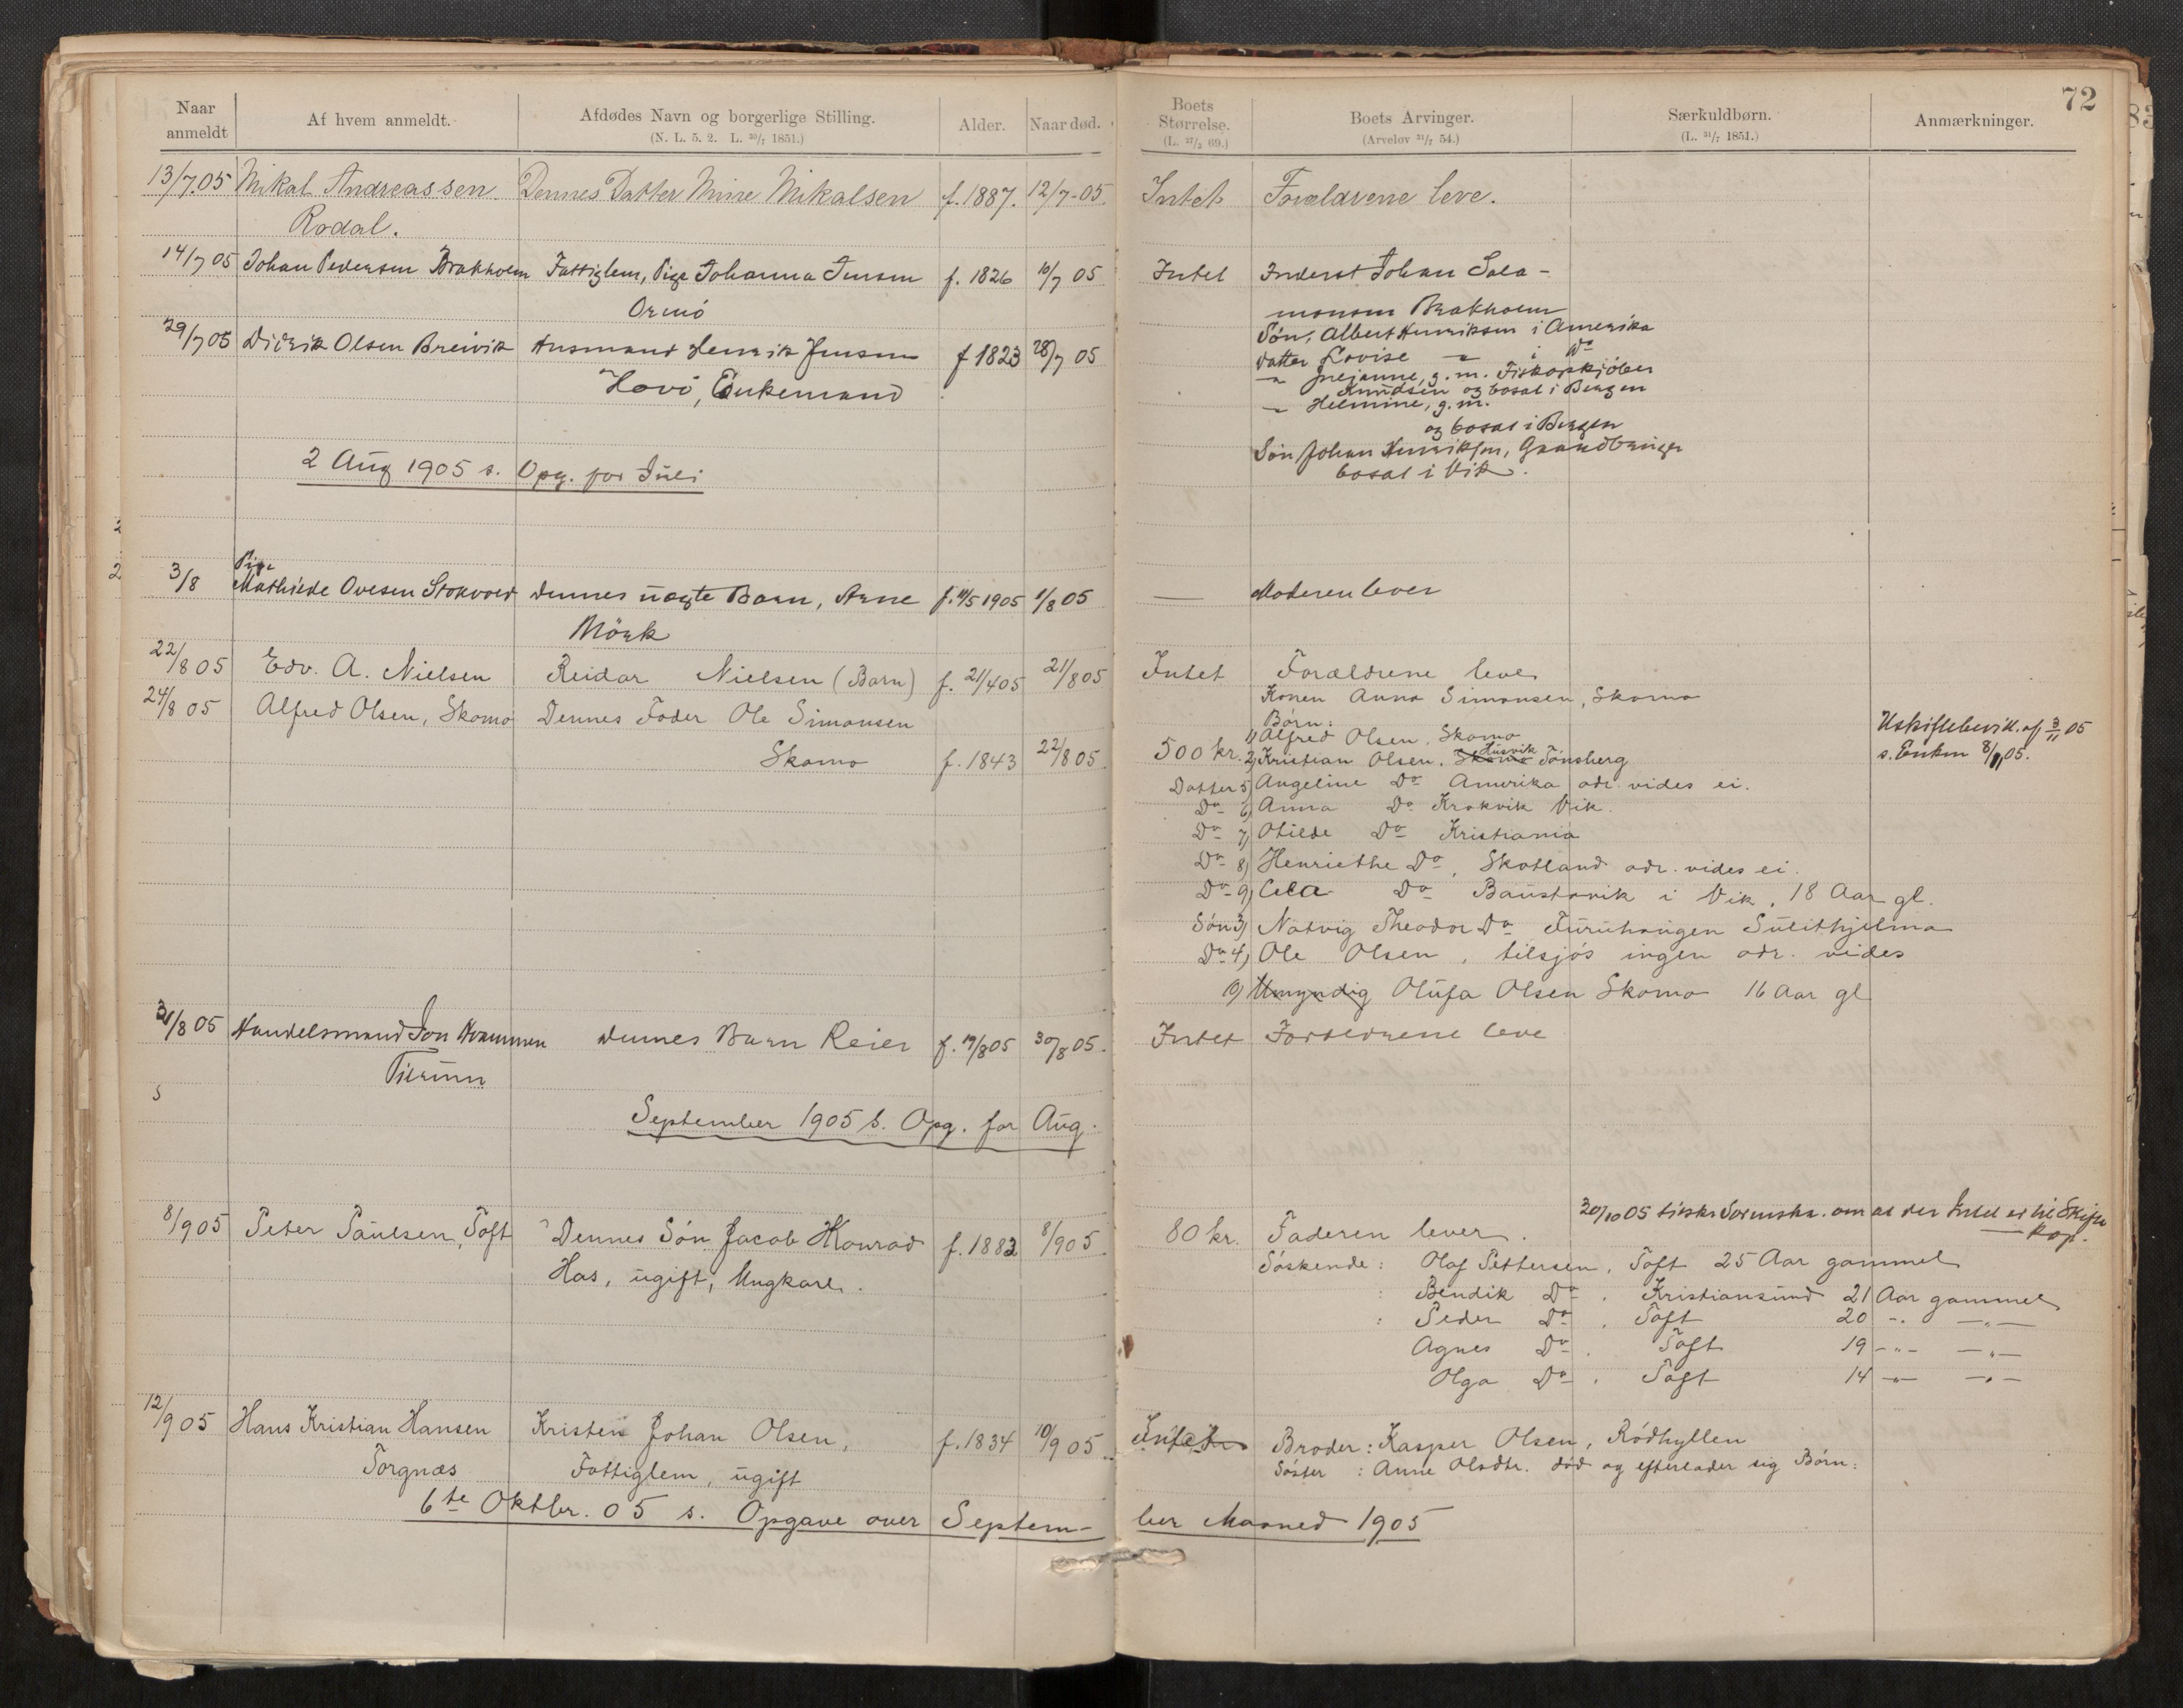 72
Naar anmeldt
Af hvem anmeldt.
Afdødes Navn og borgerlige Stilling.
(N. L. 5. 2. L. 30/7 1851.)
Alder.
Naar død.
Boets Størrelse.
(L. 27/3 69.)
Boets Arvinger.
(Arvelov 31/7 54.)
Særkuldbørn.
(L. 31/7 1851.)
Anmærkninger.
13/7.05 Mikal Andreassen Dennes Datter Mine Mikalsen f. 1887. 12/7-05. Intet Forældrene leve.
Rodal.
14/7 05 Johan Pedersen Brakholm Fattiglem, Pige Johanna Jensen f. 1826 10/7 05 Intet Inderst Johan Salo-
Ormö monsen Brakholm
29/7 05 Didrik Olsen Breivik Husmand Henrik Jensen f 1823 28/7 05
Havö, Enkemand
Søn, Albert Henriksen i Amerika
Datter Lovise " i Do
" g. m. Fiskeopkjøber
Knudsen og bosat i Bergen
" Helmine, g. m.
og bosat i Bergen
Søn Johan Henriksen, Gaardbruger
bosat i Vik.
2 Aug 1905 s. Opg. for Juli
Pige
3/8 Mathilde Ovesen Stokvold dennes uægte Barn, Arne f. 11/5 1905 1/8 05 — Moderen lever
Mörk
22/8 05 Edv. A. Nielsen Reidar Nielsen (Barn) f. 21/4 05 21/8 05 Intet Forældrene leve
24/8 05 Alfred Olsen, Skomo Dennes Fader Ole Simonsen
Skomo f. 1843 22/8 05. 500 kr.
Konen Anna Simonsen, Skomo
Børn:
1) Alfred Olsen, Skomo
2) Kristian Olsen, Skomo Husvik Tönsberg
Datter 5) Angeline Do Amerika adr. vides ei.
Do 6) Anna Do Krokvik Vik.
Do 7) Otilde Do Kristiania
Do 8) Henriethe Do, Skotland adr. vides ei.
Do 9) Do Baustavik i Vik, 18 Aar gl.
Søn 3) Natvig Theodor Do Furuhaugen Sulithjelma
Do 4) Ole Olsen, tilsjøs ingen adr. vides
10) Umyndig Olufa Olsen Skomo 16 Aar gl
Uskiftebevill. af 3/11 05
s. Enken 8/11 05.
31/8 05 Handelsmand Jon Hvammen dennes Barn Reier f. 19/8 05 30/8 05. Intet Forældrene leve
Tilrum
s
September 1905 s. Opg. for Aug.
8/9 05 Peter Paulsen, Toft Dennes Søn Jacob Konrad f. 1882 8/9 05. 80 kr. Faderen lever.
Has, ugift, Ungkarl.
20/10 05 om at der Intet er til Skifte
Søskende: Olaf Pettersen, Toft 25 Aar gammel
: Bendik Do, Kristiansund 21 Aar gammel
: Peder Do, Toft 20 -"- -"-
Agnes Do. Toft 19 -"- -"-
Olga Do, Toft 14 -"- -"-
12/9 05 Hans Kristian Hansen Kristen Johan Olsen, f. 1834 10/9 05. Intet Broder: Kasper Olsen, Rödhyllen
Torgnæs Fattiglem, ugift Søster: Anne Olsdtr. død og efterlader sig Børn:
6te Oktbr. 05 s. Opgave over Septem- ber Maaned 1905